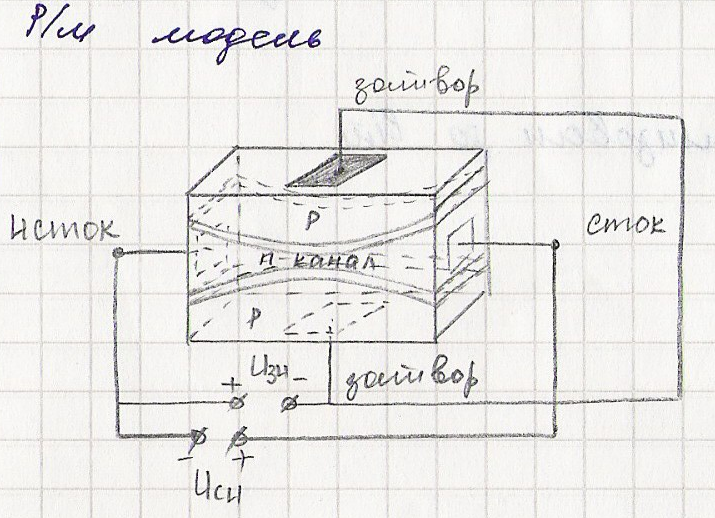 Р/м модель
затвор
Исток
сток
P
n-канал
P
+ Uзи -
затвор
- +
Uси